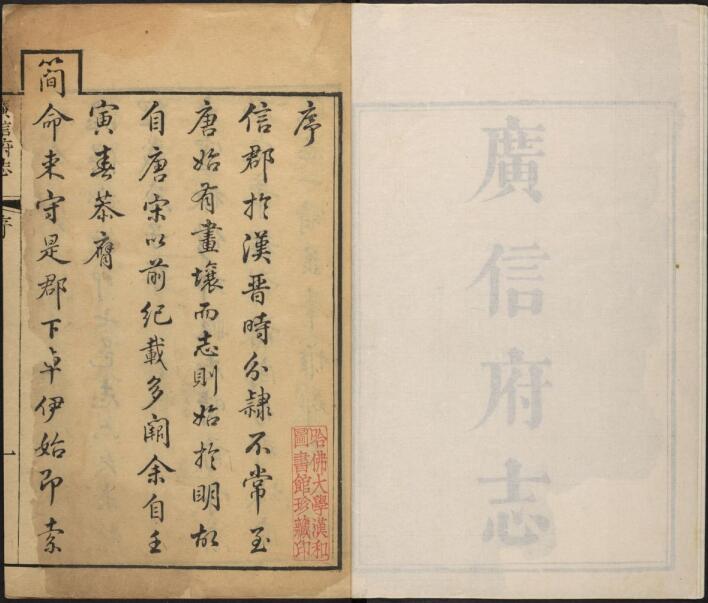 廣信府志
序
信郡於漢晋時分隷不常至
唐始有畫壤而志則始於明故
自唐宋以前紀載多闕余自壬
寅春恭膺
簡命来守是郡下車伊始即索
廣信府志
序
一
哈佛大學漢和
圖書館珍藏印